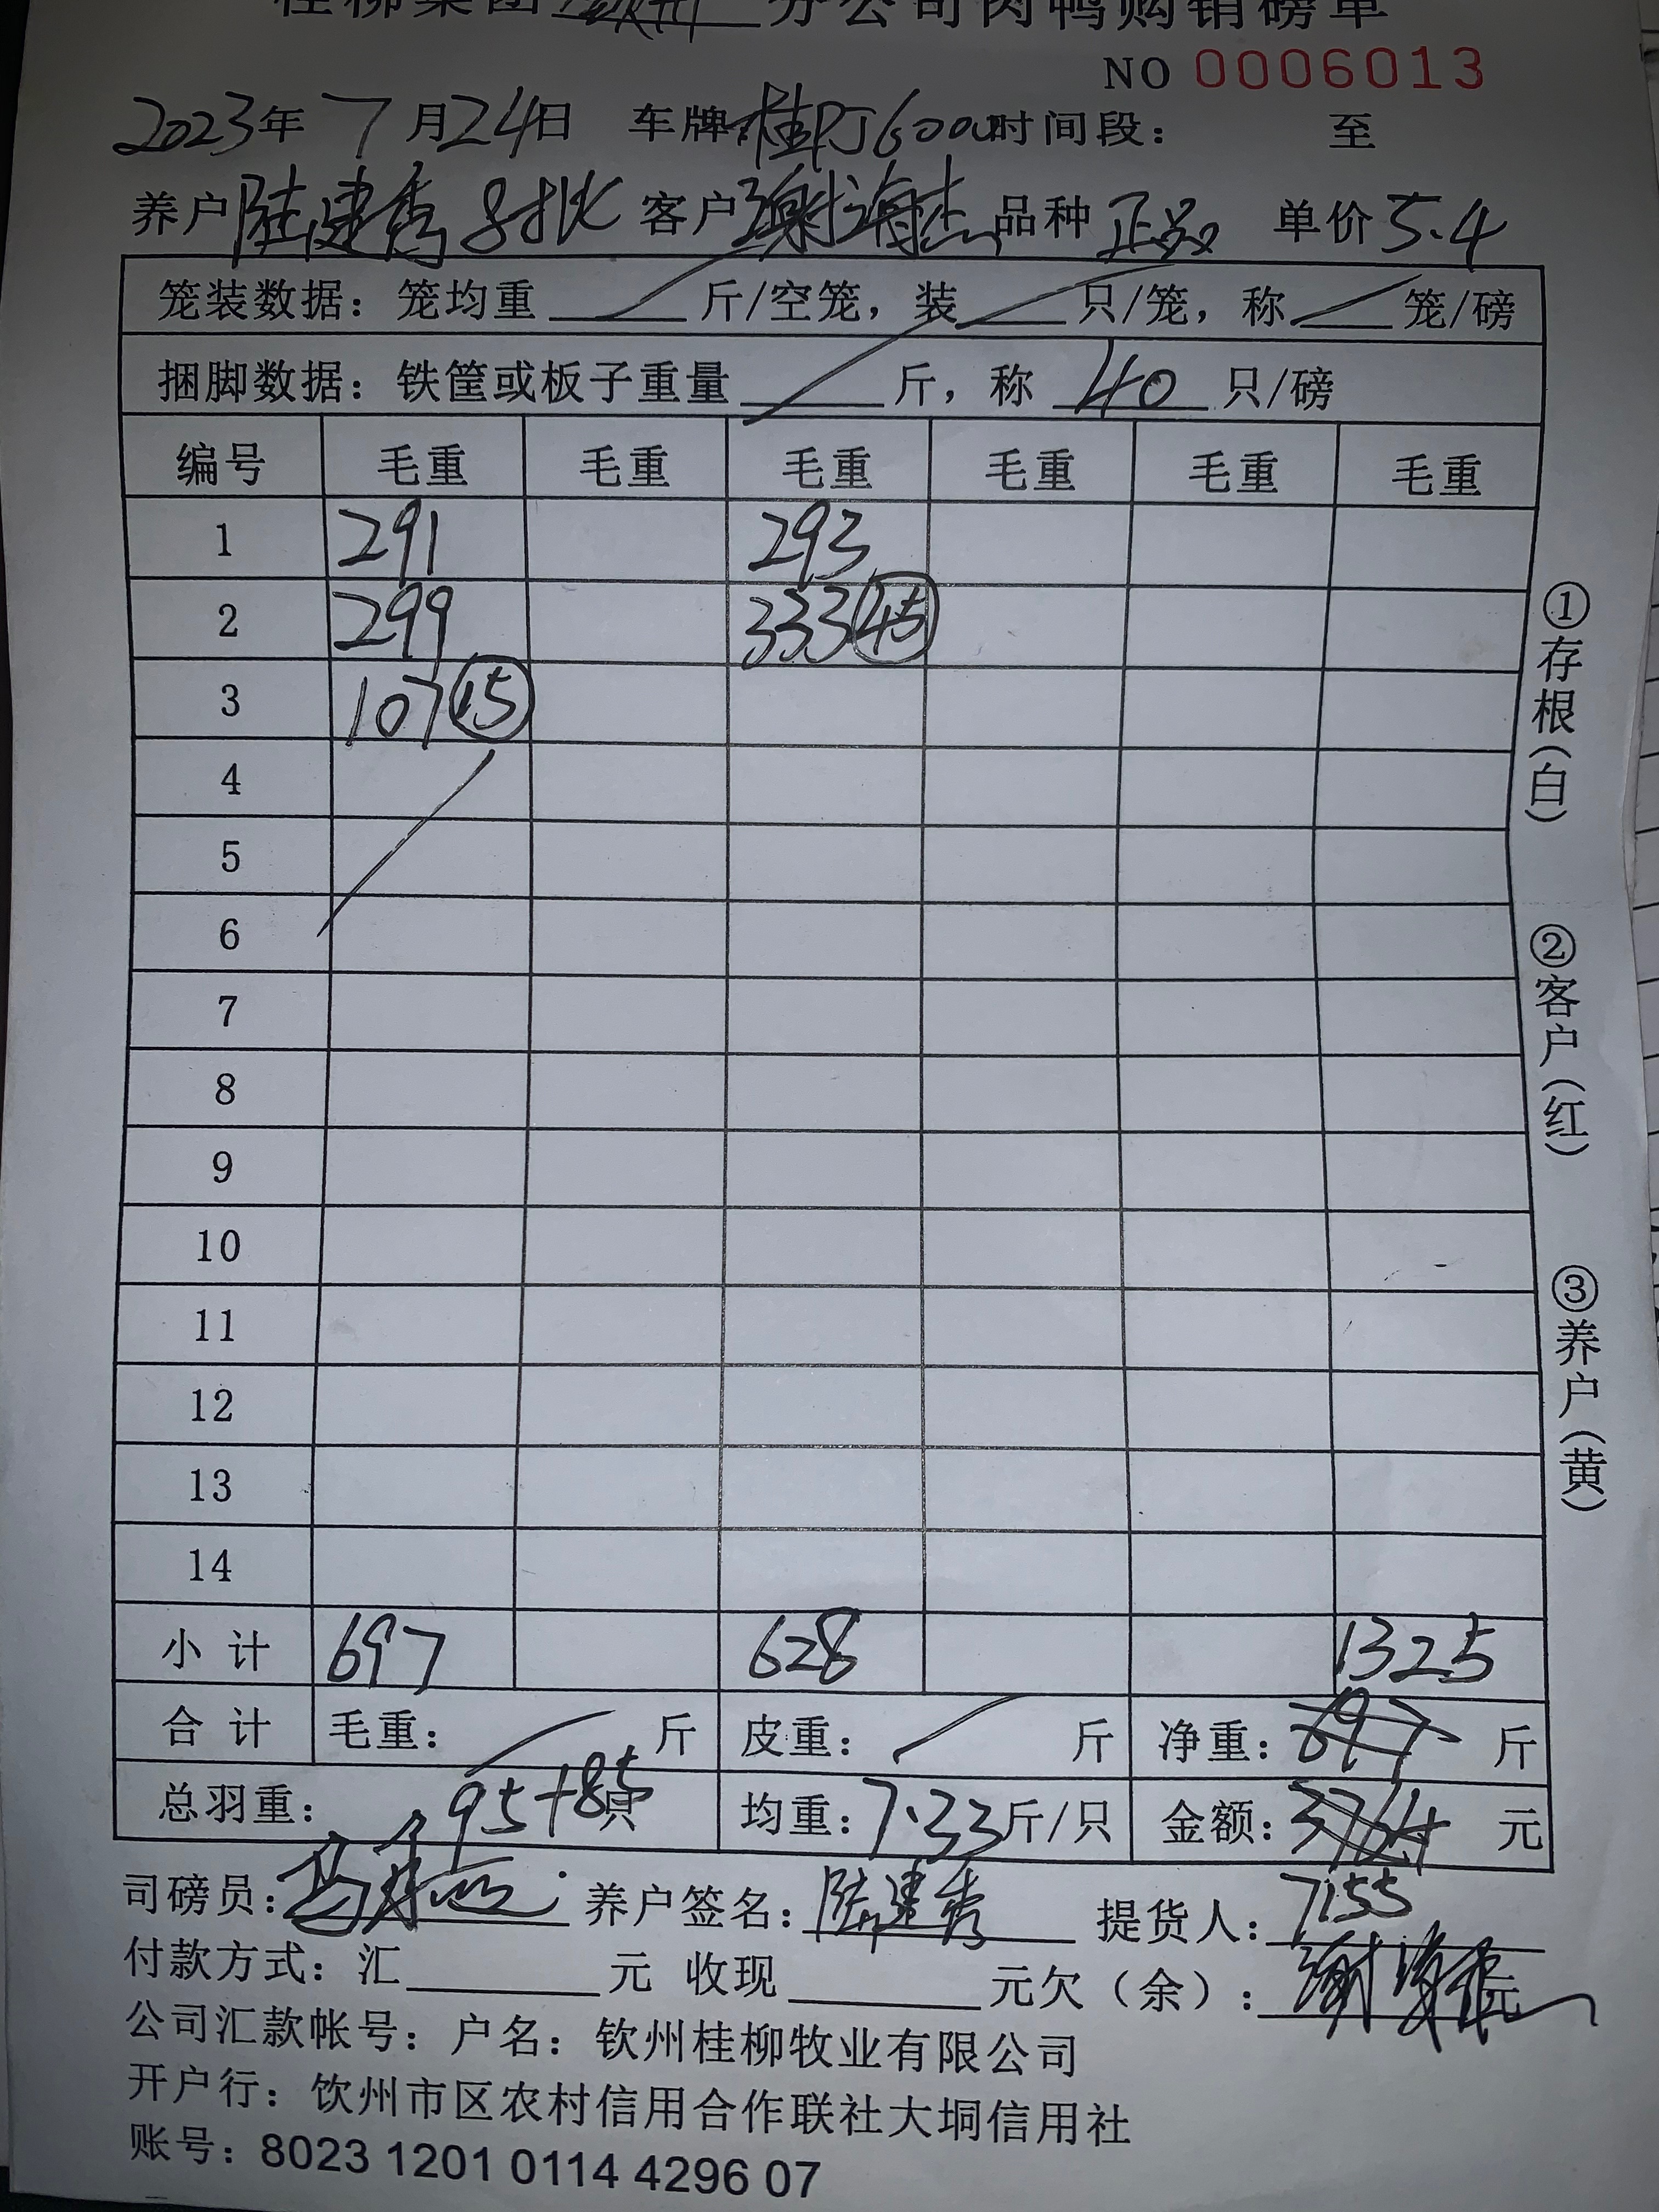 桂柳集团 分公司肉鸭购销磅单
NO 0006013
2023年 7月24日 车牌:桂 时间段: 至
养户陆建秀 8批 客户谢海杰 品种 正品 单价5.4
笼装数据:笼均重 斤/空笼,装 只/笼,称 笼/磅
捆脚数据:铁筐或板子重量 斤,称 40 只/磅
编号 毛重 毛重 毛重 毛重 毛重 毛重
1 291 293
2 299 333 45
3 107 15
4
5
6
7
8
9
10
11
12
13
14
小计 697 628 1325
合计 毛重: 斤 皮重: 斤 净重: 697 斤
总羽重: 95+85只 均重:7.33斤/只 金额:3764 元
7155
司磅员: 养户签名:陆建秀 提货人:
付款方式:汇 元 收现 元欠(余): 元
公司汇款帐号:户名:钦州桂柳牧业有限公司
开户行:钦州市区农村信用合作联社大垌信用社
账号:8023 1201 0114 4296 07
①存根(白)
②客户(红)
③养户(黄)